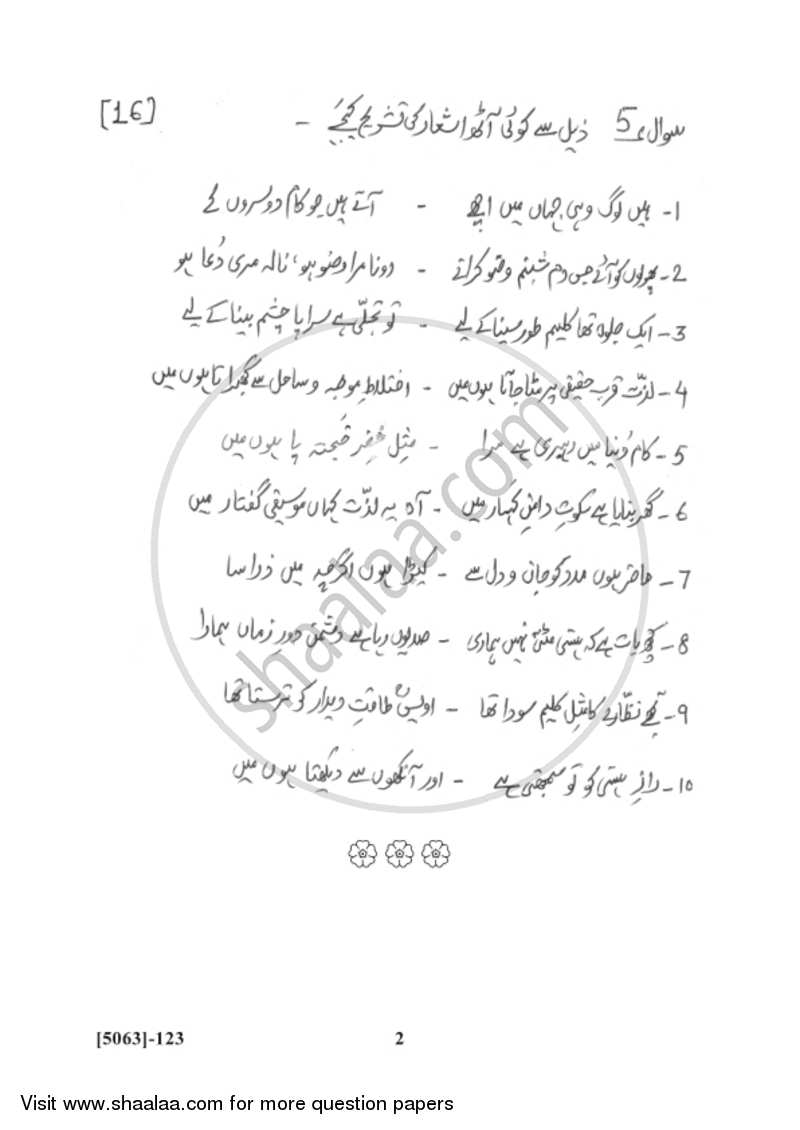 سوال 5 ذیل سے کوئی آٹھ اشعار کی تشریح کیجیے - [16]
1- ہیں لوگ وہی جہاں میں اچھے - آتے ہیں جو کام دوسروں کے
2- پھولوں کو آئے جس دم شبنم وضو کرانے - رونا مرا وضو ہو، نالہ مری دُعا ہو
3- ایک جلوہ تھا کلیم طور سینا کے لیے - تو تجلّی ہے سراپا چشم بینا کے لیے
4- لذّت قربِ حقیقی پر مٹا جاتا ہوں میں - اختلاطِ موجہ و ساحل سے گھبراتا ہوں میں
5- کام دُنیا میں رہبری ہے مرا - مثلِ خضر خجستہ پا ہوں میں
6- گھر بنایا ہے سکوتِ دامنِ کہسار میں - آہ یہ لذّت کہاں موسیقی گفتار میں
7- حاضر ہوں مدد کو جان و دل سے - کیڑا ہوں اگرچہ میں ذرا سا
8- کچھ بات ہے کہ ہستی مٹتی نہیں ہماری - صدیوں رہا ہے دشمن دورِ زماں ہمارا
9- تجھے نظّارے کا مثلِ کلیم سودا تھا - اویسؓ طاقتِ دیدار کو ترستا تھا
10- رازِ ہستی کو تو سمجھتی ہے - اور آنکھوں سے دیکھتا ہوں میں
shaalaa.com
[5063]-123 2
Visit www.shaalaa.com for more question papers